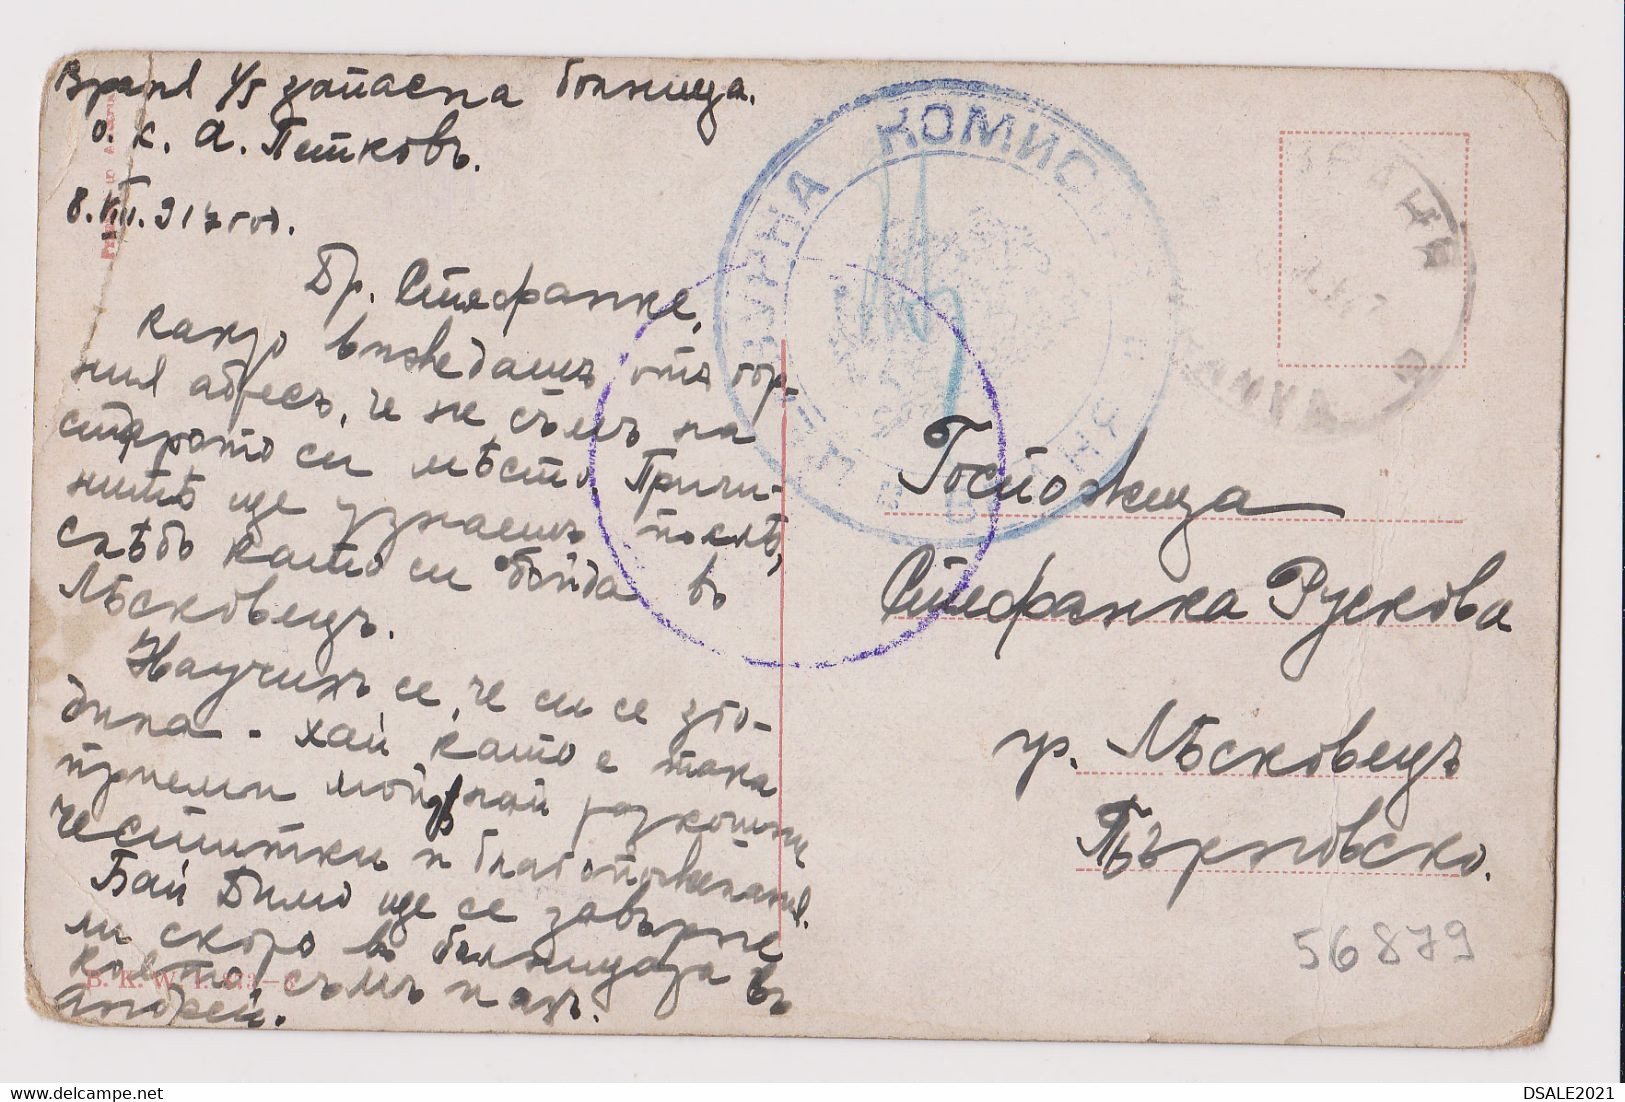 Враня 1/5 запасна болница.
о. к. А. Петковъ.
8.VIII.917 год.
Др. Стефанке,
какго виждашъ отъ гор-
ния адресъ, че не съмъ на
старото си мѣсто. Причи-
нитѣ ще узнаешъ послѣ,
слѣдъ като си дойда въ
Лѣсковецъ.
Научихъ се, че си се зго-
дила - хай като е така
приеми мойтѣ най разкошни
честитки и благопожелания.
Бай Димо ще се завърне
ми скоро въ болницата въ
която съмъ и азъ.
Андрей.
B. K. W. I.
КОМИС
Госпожица
Стефанка Рускова
гр. Лѣсковецъ
Търновско.
56879
DSALE2021